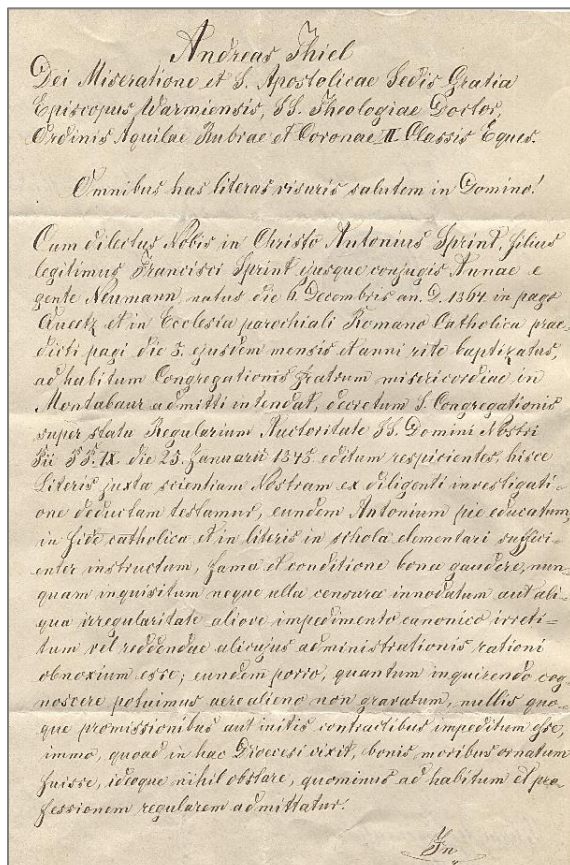 Andreas Thiel
Dei Miseratione et S. Apostolicae Sedis Gratia
Episcopus Warmiensis, SS. Theologiae Doctor,
Ordinis Aquilae Rubrae et Coronae II Classis Eques.
Omnibus has literas visuris salutem in Domino!
Cum dilectus Nobis in Christo Antonius Sprint, filius
legitimus Francisci Sprint ejusque conjugis Annae e
gente Neumann, natus die 6 Decembris an. D. 1864 in pago
Queetz et in Ecclesia parochiali Romano Catholica prae-
dicti pagi die ejusdem mensis et anni rite baptizatus,
ad habitum Congregationis fratrum misericordiae in
Montabaur admitti intendat, decretum S. Congregationis
super statu Regularium Auctoritate SS. Domini Nostri
Pii PP. IX. die 25. Januarii editum respicientes, hisce
Literis juxta scientiam Nostram ex diligenti investigati=
one deductam testamur, eundem Antonium pie educatum,
in fide catholica et in literis in schola elementari suffici-
enter instructum, fama et conditione bona gaudere, nun-
quam inquisitum neque ulla censura innodatum aut ali-
qua irregularitate aliove impedimento canonico irreti=
tum vel reddendae alicujus administrationis rationi
obnoxium esse; eundem porro, quantum inquirendo cog-
noscere potuimus aere alieno non gravatum, nullis quo-
que promissionibus aut initis contractibus impeditum esse,
immo, quoad in hac Dioecesi vixit, bonis moribus ornatum
fuisse, ideoque nihil obstare, quominus ad habitum et pro-
fessionem regularem admittatur.
In